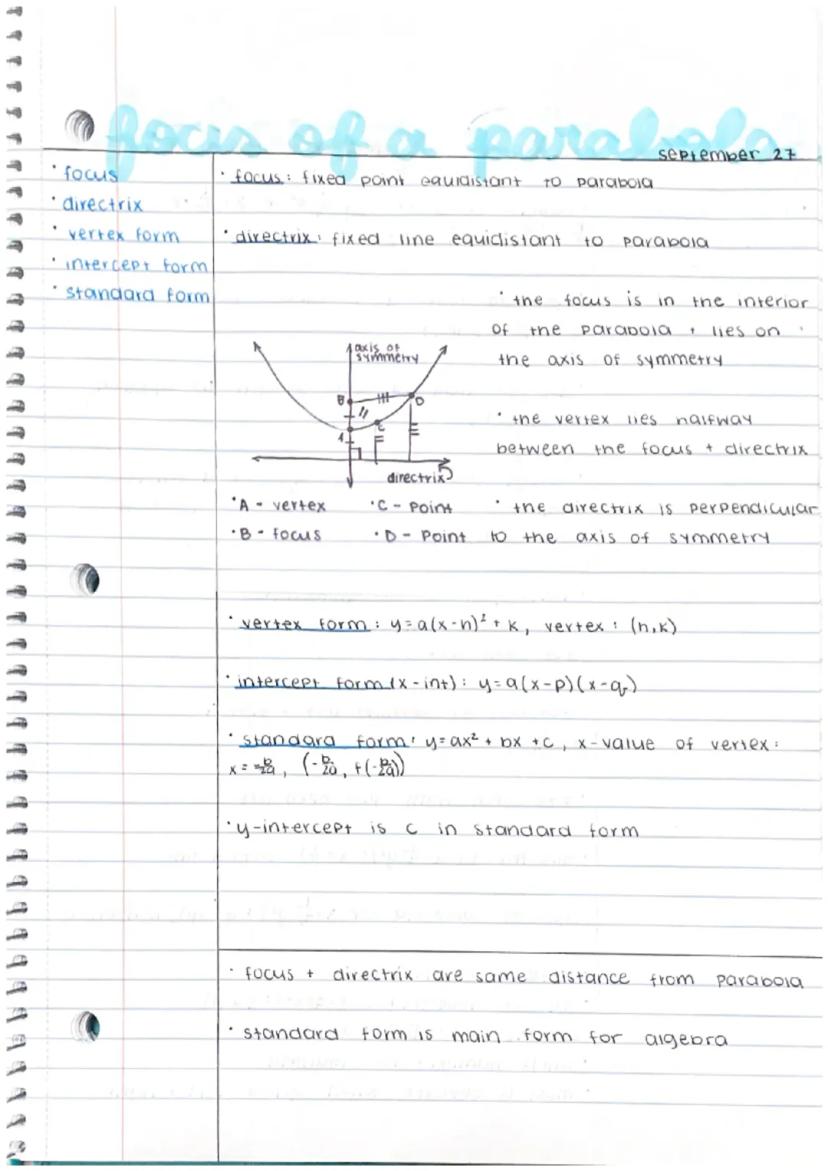 focus of a parabola
september 27
· focus
· directrix
· vertex form
· intercept form
· standard form
· focus: fixed point equidistant to parabola
· directrix: fixed line equidistant to parabola
· the focus is in the interior
of the parabola + lies on
the axis of symmetry
axis of
symmetry
B
D
C
A
directrix
· the vertex lies halfway
between the focus + directrix
· A - vertex · C - Point
· B - focus · D - Point
· the directrix is perpendicular
to the axis of symmetry
· vertex form: y=a(x-h)² + k, vertex: (h,k)
· intercept form (x-int): y=a(x-p)(x-q)
· standard form: y=ax² + bx +c, x-value of vertex:
x = -b/2a, (-b/2a, f(-b/2a))
· y-intercept is c in standard form
· focus + directrix are same distance from parabola
· standard form is main form for algebra